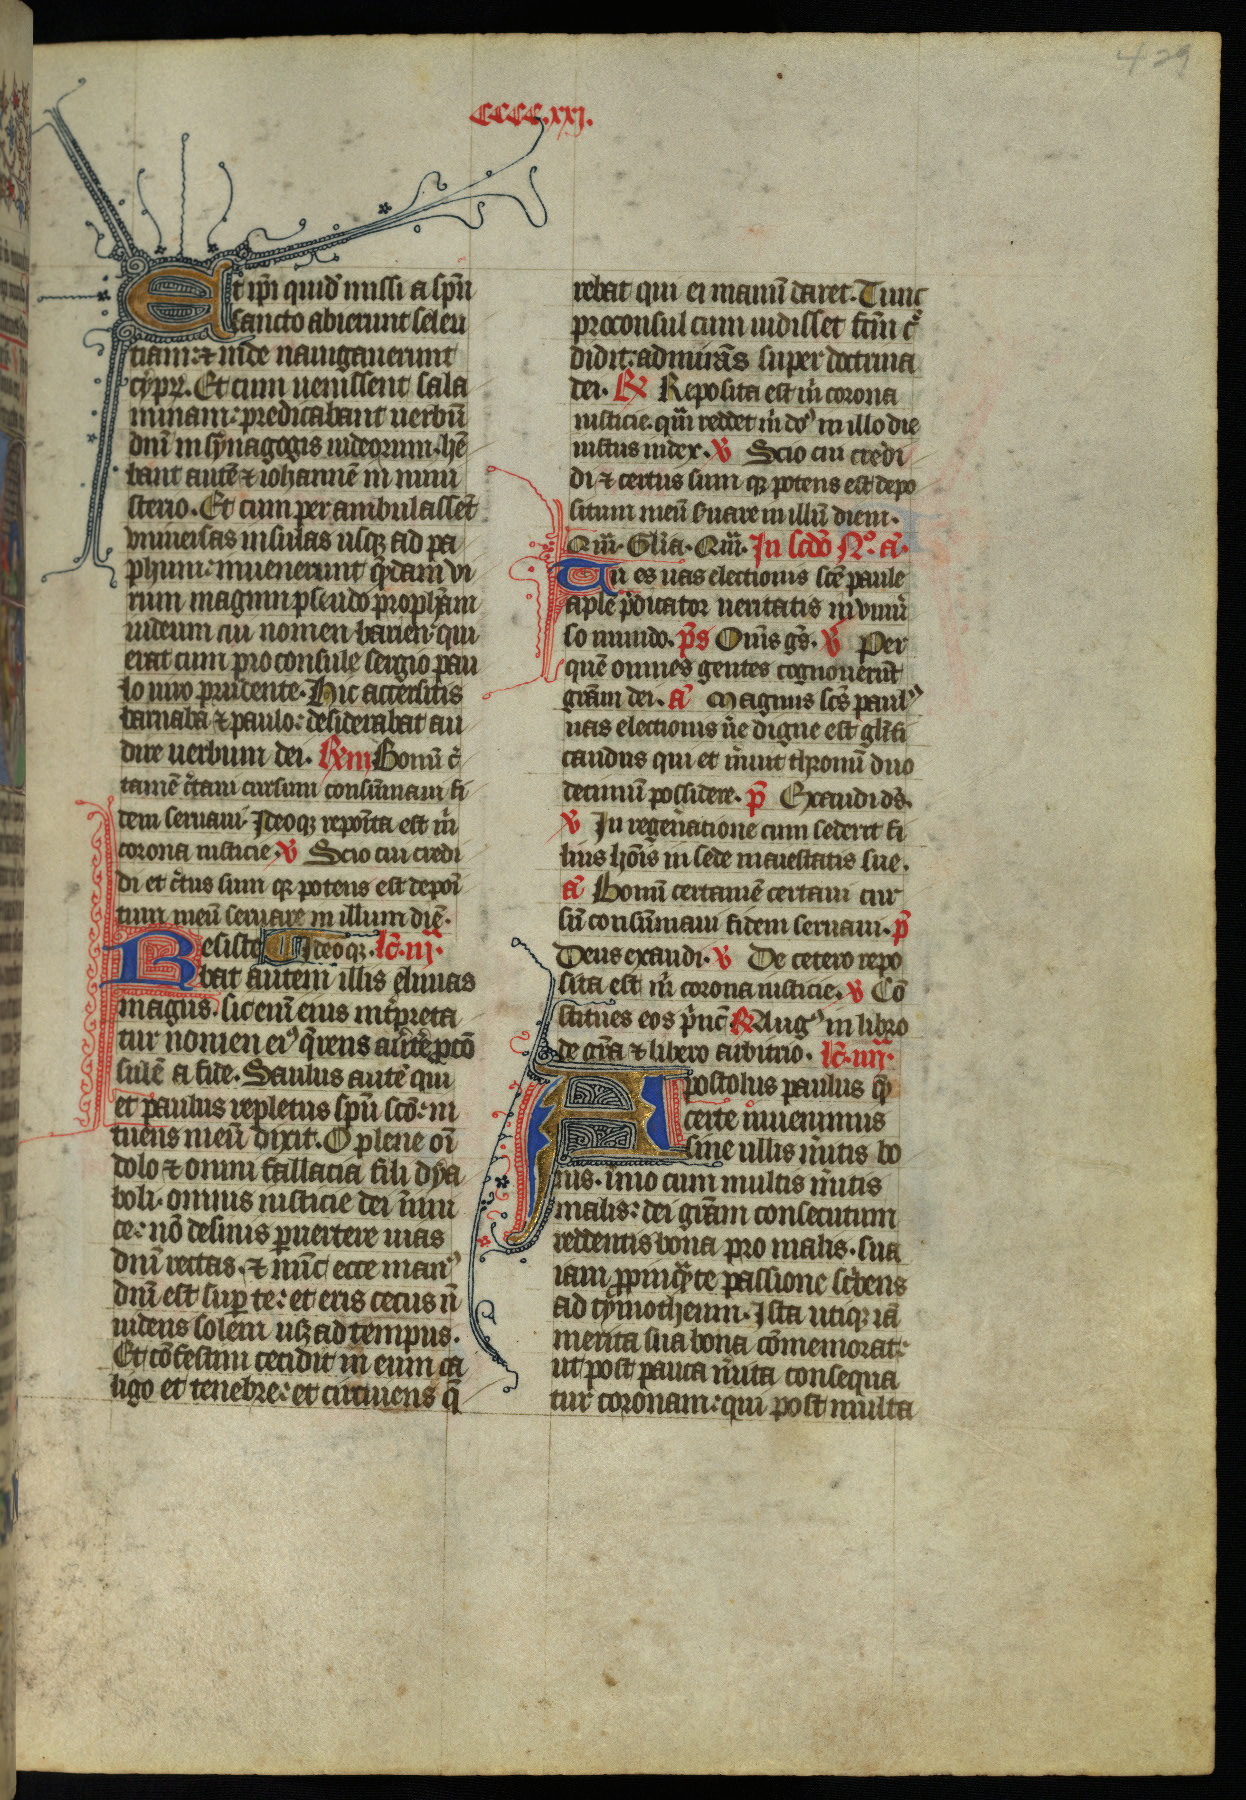 429
CCCC.xxj.
Et ip̄i quid̄ missi a sp̄u
sancto abierunt seleu
tiam: ⁊ inde nauigauerunt
cyprꝫ. Et cum uenissent sala
minam: predicabant uerbū
dn̄i in synagogis iudeorum. hē
bant autē ⁊ iohannē in mini
sterio. Et cum perambulassēt
vniuersas insulas usqꝫ ad pa
phum: inuenerunt q̄dam vi
rum magum pseudo proph̄am
iudeum cui nomen barieu: qui
erat cum proconsule sergio pau
lo uiro prudente. Hic accersitis
barnaba ⁊ paulo: desiderabat au
dire uerbum dei. Bonū c̄
tamē c̄taui cursum consūmaui fi
dem seruaui. Ideoqꝫ repoīta est m̄
corona iusticie. ℣ Scio cui credi
di et c̄tus sum qꝫ potens est depoī
tum meū seruare in illum diē.
Ideoqꝫ. lc̄. iij.
Resiste
bat autem illis elimas
magus. sic enī eius int̄preta
tur nomen ei⁹ q̄rens aūtē ꝓcō
sulē a fide. Saulus autē qui
et paulus repletus sp̄u sc̄o: in
tuens in eū dixit. O plene oī
dolo ⁊ omni fallacia fili dya
boli. omnis iusticie dei inimi
ce: nō desinis ꝑuertere uias
dn̄i rectas. ⁊ nūc ecce man⁹
dn̄i est suꝑ te: et eris cecus n̄
uidens solem usqꝫ ad tempus.
Et cōfestim cecidit in eum ca
ligo et tenebre: et circuiens q̄
rebat qui ei manū daret. Tunc
proconsul cum uidisset fc̄m c̄
didit: admirās super doctrina
dei. ℟ Reposita est m̄ corona
iusticie. quā reddet m̄ dō in illo die
iustus iudex. ℣ Scio cui credi
di ⁊ certus sum qꝫ potens est depo
situm meū seruare in illū diem.
Quā. Gl̄ia. Quā. In sc̄do N⁰. a͞.
Tu es uas electionis sc̄e paule
ap̄le p̄dicator ueritatis in vniu̅
so mundo. p̄s Om̄s gē̄s. ℣ Per
quē omnes gentes cognouerūt
grām dei. a͞ Magnus sc̄s paul⁹
uas electionis u̅e digne est gl̄ifi
candus qui et m̄uit thronū duo
decimū possidere. p̄ Exaudi ds̄.
℣ In regen̄atione cum sederit fi
lius hōis in sede maiestatis sue.
a͞ Bonū certamē certaui cur
sū consūmaui fidem seruaui. p̄
Deus exaudi. ℣ De cetero repo
sita est m̄ corona iusticie. ℣ Cō
stitues eos p̄nc̄ ℟ Aug⁹ in libro
de grā ⁊ libero arbitrio. lc̄. iiij.
Apostolus paulus q̄
certe inuenimus
sine ullis m̄itis bo
nis. īmo cum multis m̄itis
malis: dei grām consecutum
reddentis bona pro malis. sua
iam ꝓpinq̄te passione sc̄bens
ad tymotheum. Ista utiqꝫ iā
merita sua bona cōmemorat:
ut post pauca m̄ita consequa
tur coronam: qui post multa